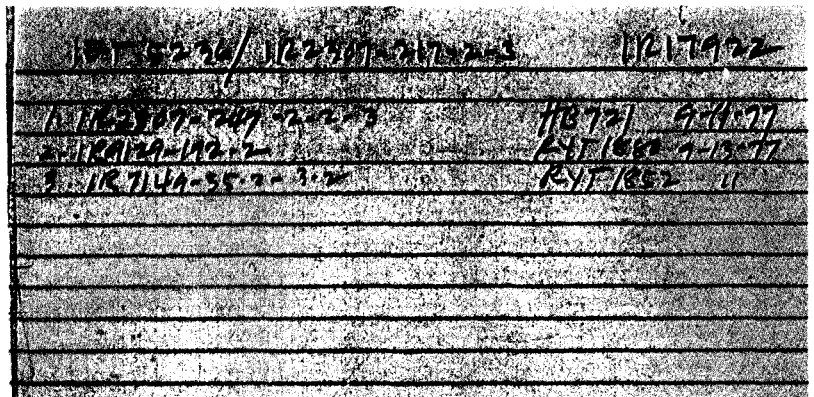 IRT 5236/ IR2307-217-2-3 IR17922
1. IR2307-247-2-2-3 HB721 9-9-77
2. IR9129-192-2 RYT1882 9-13-77
3. IR7149-35-2-3-2 RYT1852 11